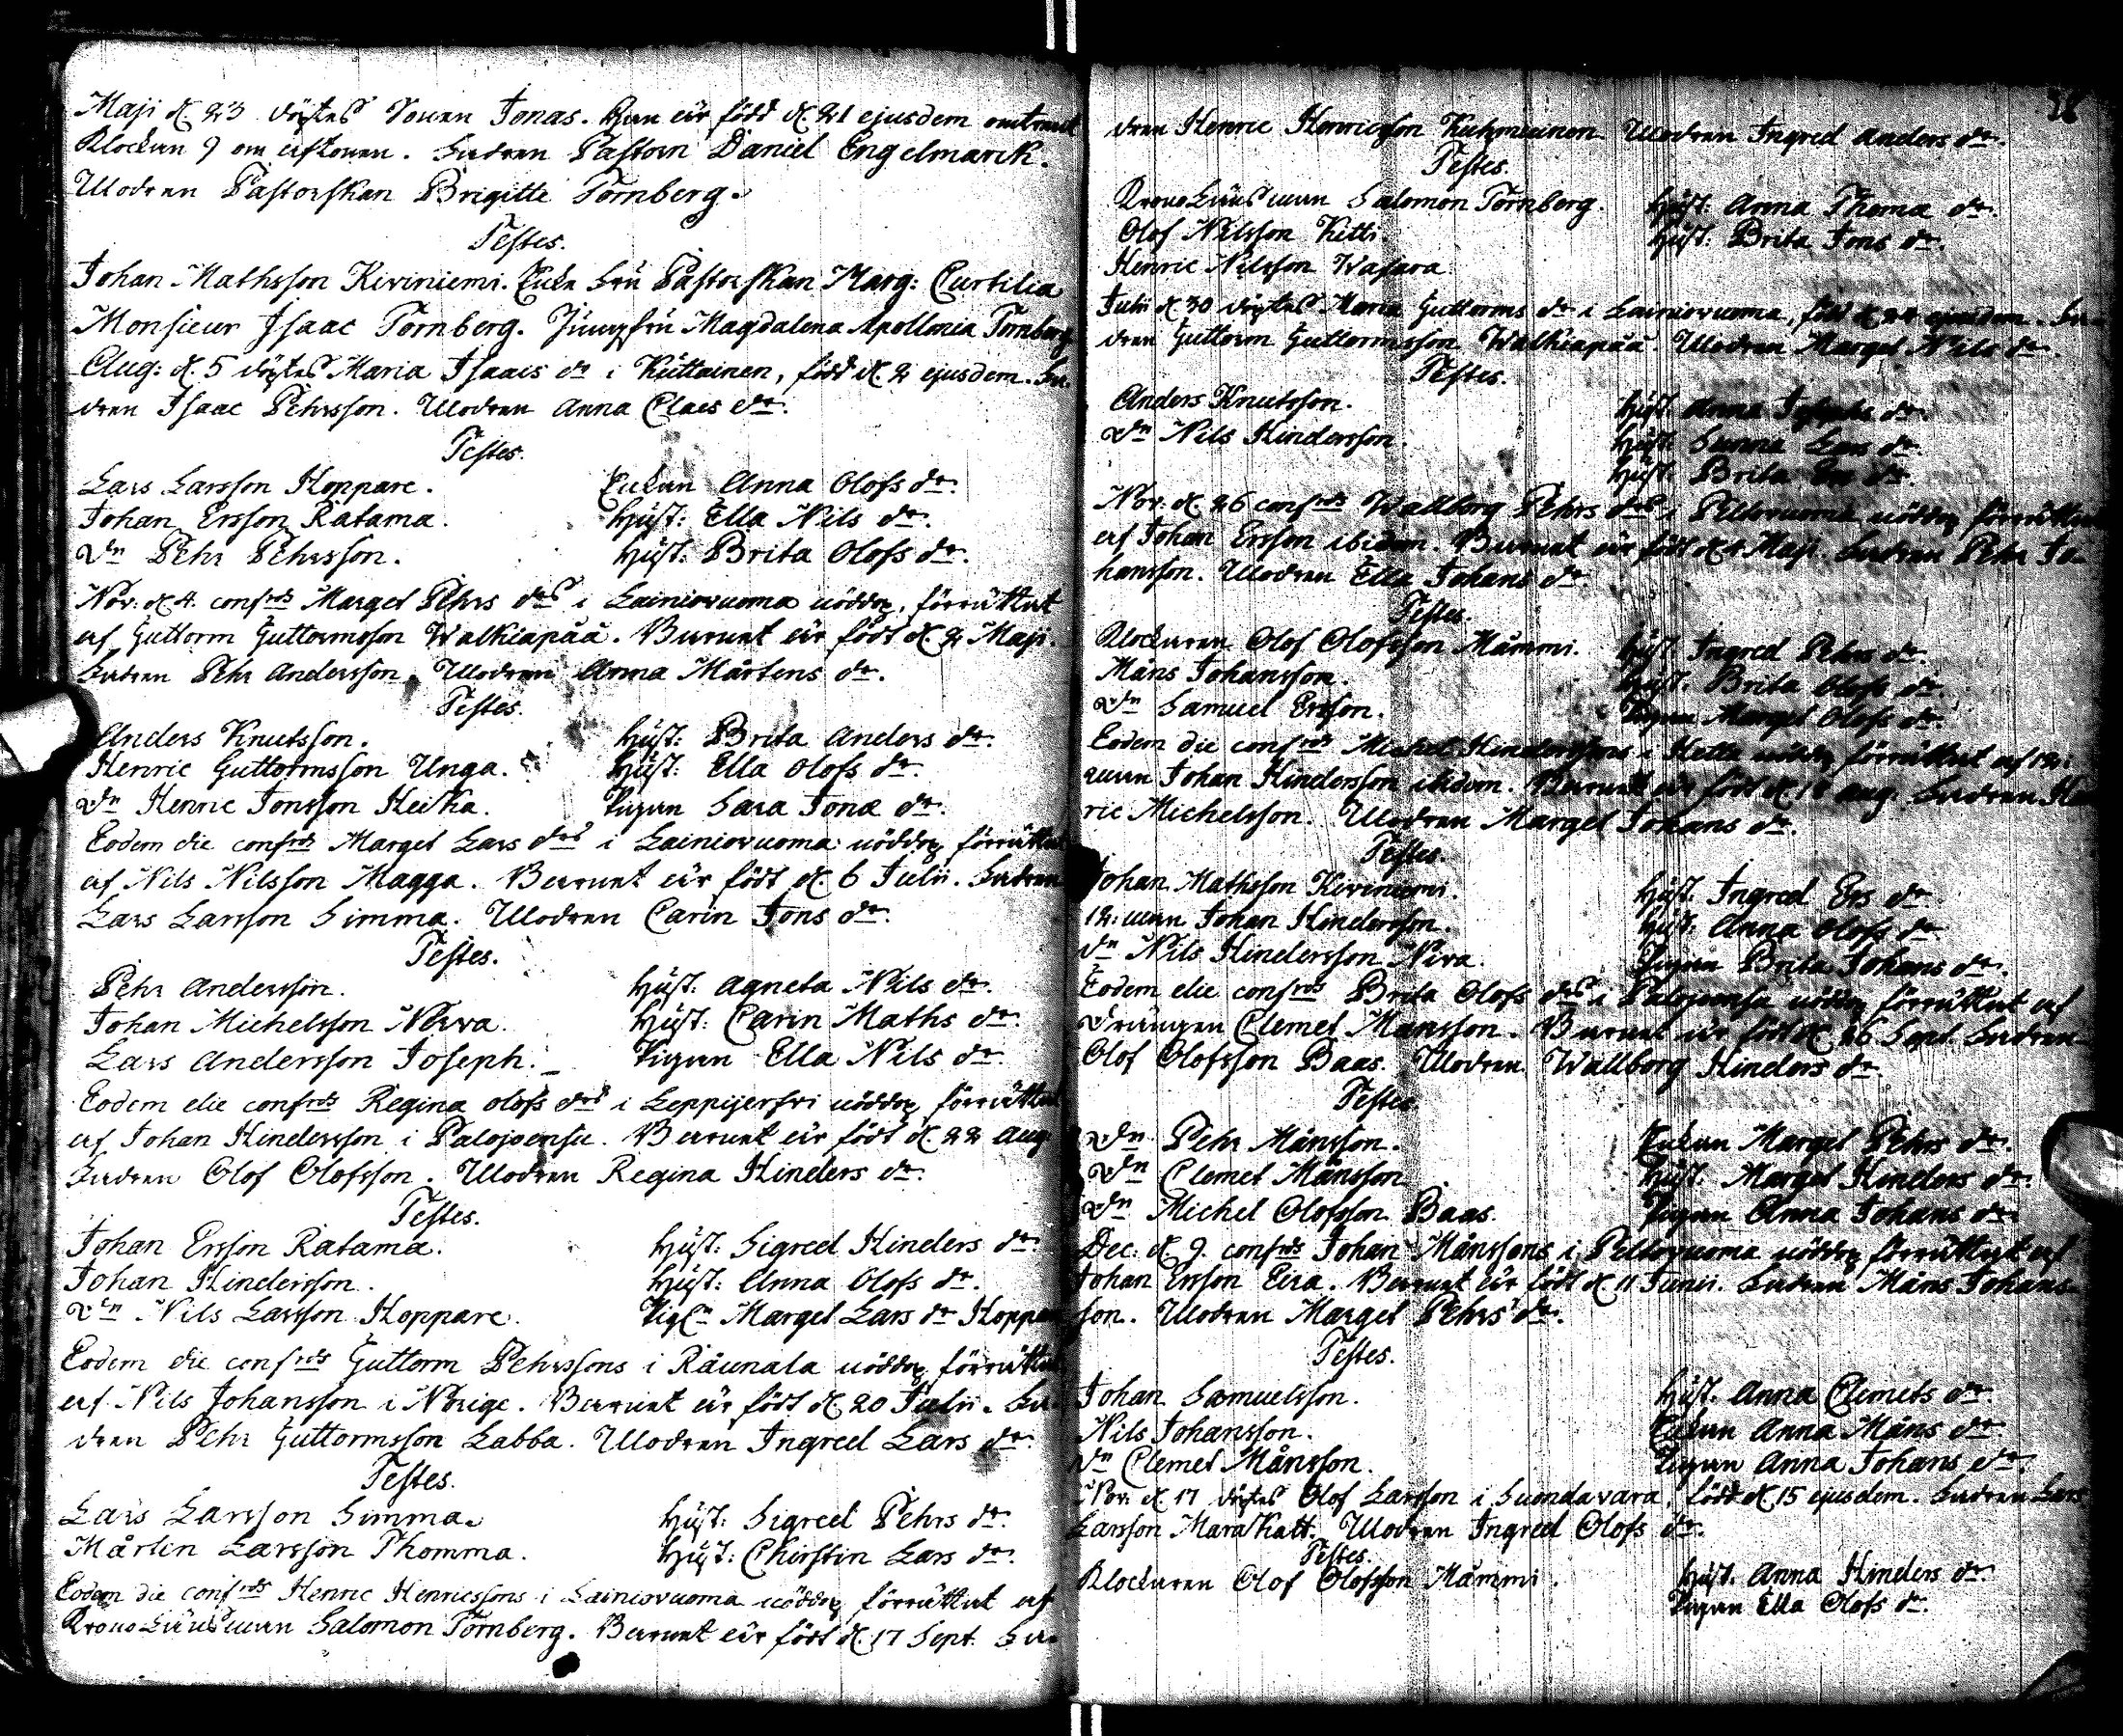 Maji d. 23 döptes Sonen Jonas. Han är född d. 21 ejusdem omtrent
Klockan 9 om aftonen. Fadren Pastorn Daniel Engelmarck.
Modren Pastorskan Brigitte Törnberg.
Testes.
Johan Mathsson Kiviniemi. Enke Fru Pastorskan Marg: Curtilia
Monsieur Isaac Törnberg. Jungfru Magdalena Apollonia Törnberg
Aug: d. 5 döptes Maria Isaacs dr i Kuttainen, född d. 2 ejusdem. Fa-
dren Isaac Pehrsson. Modren Anna Claes dr.
Testes.
Lars Larsson Hoppare. Enkan Anna Olofs dr.
Johan Ersson Ratama. Hust: Ella Nils dr.
Dn Pehr Pehrsson. Hust: Brita Olofs dr.
Nov: d. 4. confrds Marget Pehrs drs i Lainiovuoma nöddop, förrättat
af Guttorm Guttormsson Walkiapää. Barnet är födt d. 2 Maji.
Fadren Pehr Andersson. Modren Anna Mårtens dr.
Testes.
Anders Knutsson. Hust: Brita Anders dr.
Henric Guttormsson Unga. Hust: Ella Olofs dr.
Dn Henric Jonsson Heika. Pigan Sara Jonæ dr.
Eodem die confrds Marget Lars drs i Lainiovuoma nöddop förrättat
af Nils Nilsson Magga. Barnet är födt d. 6 Julii. Fadren
Lars Larsson Simma. Modren Carin Jons dr.
Testes.
Pehr Andersson. Hust: Agneta Nils dr.
Johan Michelsson Nerva. Hust: Carin Maths dr.
Lars Andersson Joseph. Pigan Ella Nils dr.
Eodem die confrds Regina Olofs drs i Leppijerfvi nöddop förrättat
af Johan Hindersson i Palojoensu. Barnet är födt d. 22 Aug.
Fadren Olof Olofsson. Modren Regina Hinders dr.
Testes.
Johan Ersson Ratama. Hust: Sigred Hinders dr.
Johan Hindersson. Hust: Anna Olofs dr.
Dn Nils Larsson Hoppare. Pign Marget Lars dr Hoppare
Eodem die confrds Guttorm Pehrssons i Råunala nöddop förrättat
af Nils Johansson i Norige. Barnet är födt d. 20 Julii. Fa-
dren Pehr Guttormsson Labba. Modren Ingred Lars dr.
Testes.
Lars Larsson Simma. Hust: Sigred Pehrs dr.
Mårtin Larsson Thomma. Hust: Chirstin Lars dr.
Eodem die confrds Henric Henricssons i Lainiovuoma nöddop förrättat af
KronoLänsman Salomon Törnberg. Barnet är födt d. 17 Sept. Fa-
38
dren Henric Henricsson Kuhmuinen. Modren Ingred Anders dr.
Testes.
KronoLänsman Salomon Törnberg. Hust: Anna Thoma dr.
Olof Nilsson Ketti. Hust: Brita Jons dr.
Henric Nilsson Wasara
Julii d. 30 döptes Maria Guttorms dr i Lainiovuoma, född d. ejusdem. Fa-
dren Guttorm Guttormsson Walkiapää. Modren Marget Nils dr.
Testes.
Anders Knutsson. Hust: Anna Josephs dr.
Dn Nils Hindersson. Hust: Sunna Lars dr.
Hust: Brita dr.
Nov: d. 26 confrds Wallborg Pehrs drs i Peltovuoma nöddop förrättat
af Johan Ersson ibidem. Barnet är födt d. Maji. Fadren Pehr Jo-
hansson. Modren Ella Johans dr.
Testes.
Klockaren Olof Olofsson Mämmi. Hust: Ingred Pehrs dr.
Måns Johansson. Hust: Brita Olofs dr.
Dn Samuel Ersson. Pigan Marget Olofs dr.
Eodem die confrds Michel Hinderssons i Hetta nöddop förrättat af 12:
man Johan Hindersson ibidem. Barnet är födt d. Aug. Fadren Hen
ric Michelsson. Modren Marget Johans dr.
Testes.
Johan Mathsson Kiviniemi. Hust: Ingred Ers dr.
12:man Johan Hindersson. Hust: Anna Olofs dr.
Dn Nils Hindersson Niva. Pigan Brita Johans dr.
Eodem die confrds Brita Olofs drs i Palojoensu nöddop förrättat af
Drängen Clemet Månsson. Barnet är födt d. 26 Sept. Fadren
Olof Olofsson Baas. Modren Wallborg Hinders dr.
Testes.
Dn Pehr Månsson. Enkan Marget Pehrs dr.
Dn Clemet Månsson Hust: Marget Hinders dr.
Dn Michel Olofsson Baas. Pigan Anna Johans dr
Dec: d. 9. confrds Johan Månssons i Peltovuoma nöddop förrättat af
Johan Ersson Eira. Barnet är födt d. 11 Junii. Fadren Måns Johans-
son. Modren Marget Pehrs dr.
Testes.
Johan Samuelsson. Hust: Anna Clemets dr.
Nils Johansson. Enkan Anna Måns dr.
Dn Clemet Månsson. Pigan Anna Johans dr.
Nov: d. 17 döptes Olof Larsson i Suondavara, född d. 15 ejusdem. Fadren Lars
Larsson Maraskatt. Modren Ingred Olofs dr.
Testes.
Klockaren Olof Olofsson Mämmi. Hust. Anna Hinders dr.
Pigan Ella Olofs dr.